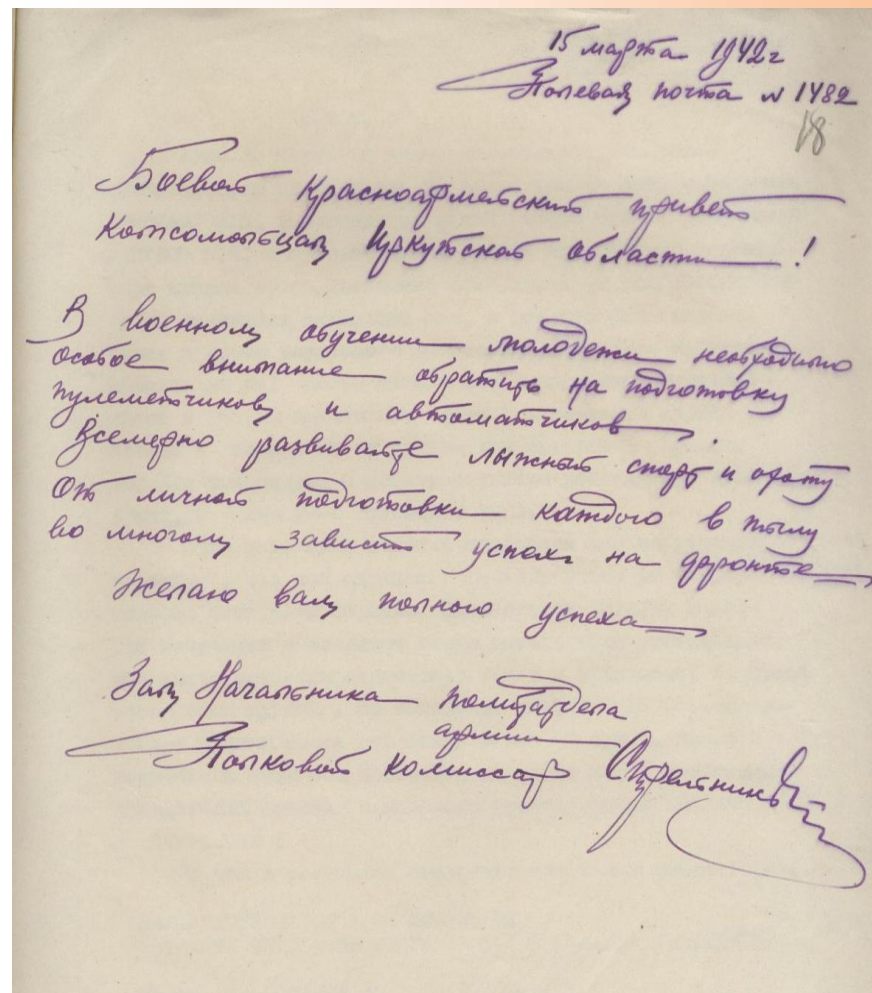 15 марта 1942г
Полевая почта № 1482
18
Боевой красноармейский привет
Комсомольцам Иркутской области!
В военном обучении молодежи необходимо
особое внимание обратить на подготовку
пулеметчиков и автоматчиков.
Всемерно развивайте лыжный спорт и охоту
От личной подготовки каждого в тылу
во многом зависит успех на фронте
Желаю вам полного успеха
Зам Начальника политотдела
армии
Полковой комиссар Стрельников